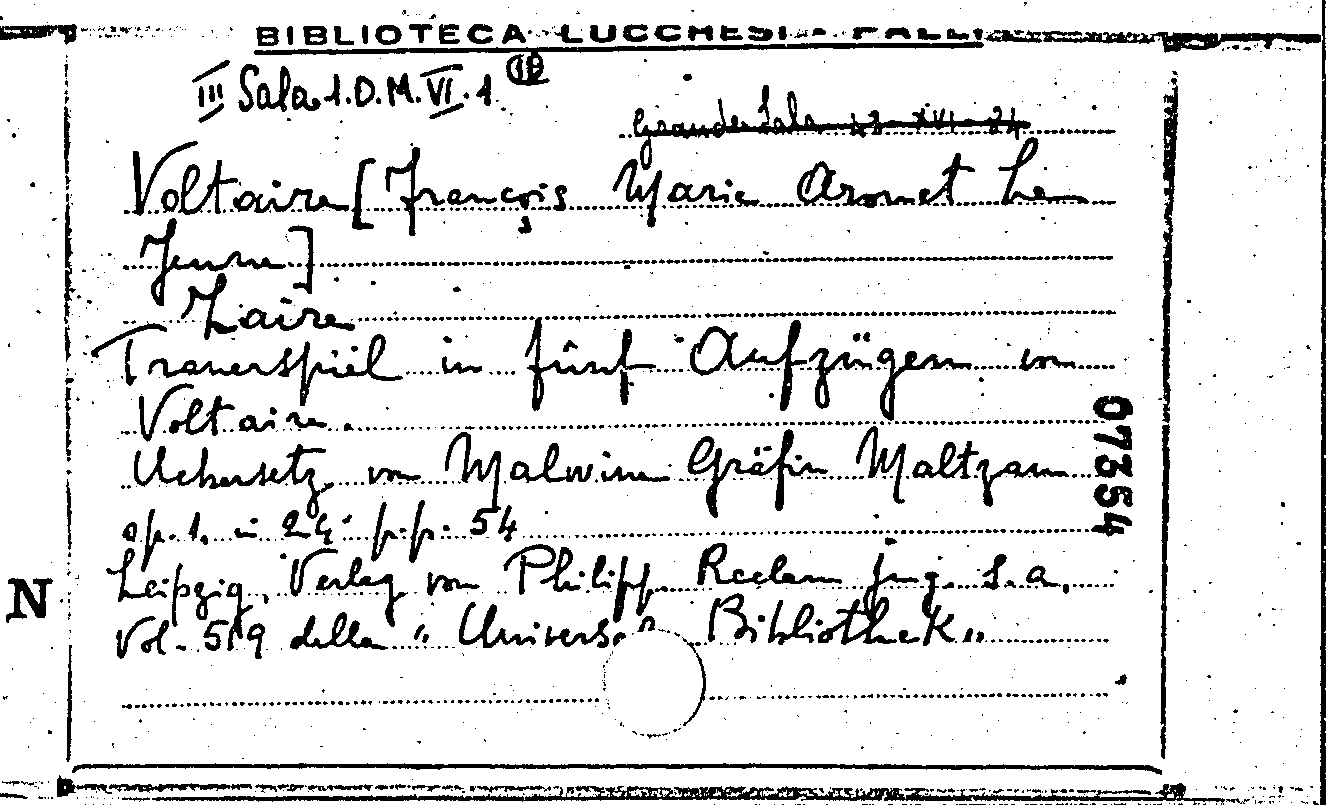 BIBLIOTECA LUCCHESI - PALLI
III Sala 1.D.M.VI.1
Grande Sala 43-XVI-24
Voltaire [François Marie Arouet Le
Jeune]
Zaire
Trauerspiel in fünf Aufzügen von
Voltaire.
Uebersetz. von Malwine Gräfin Maltzan
op. 1. in 24° p.p. 54
Leipzig, Verlag von Philipp Reclam jug. s.a.
Vol. 519 della "Universal Bibliothek"
07354
N